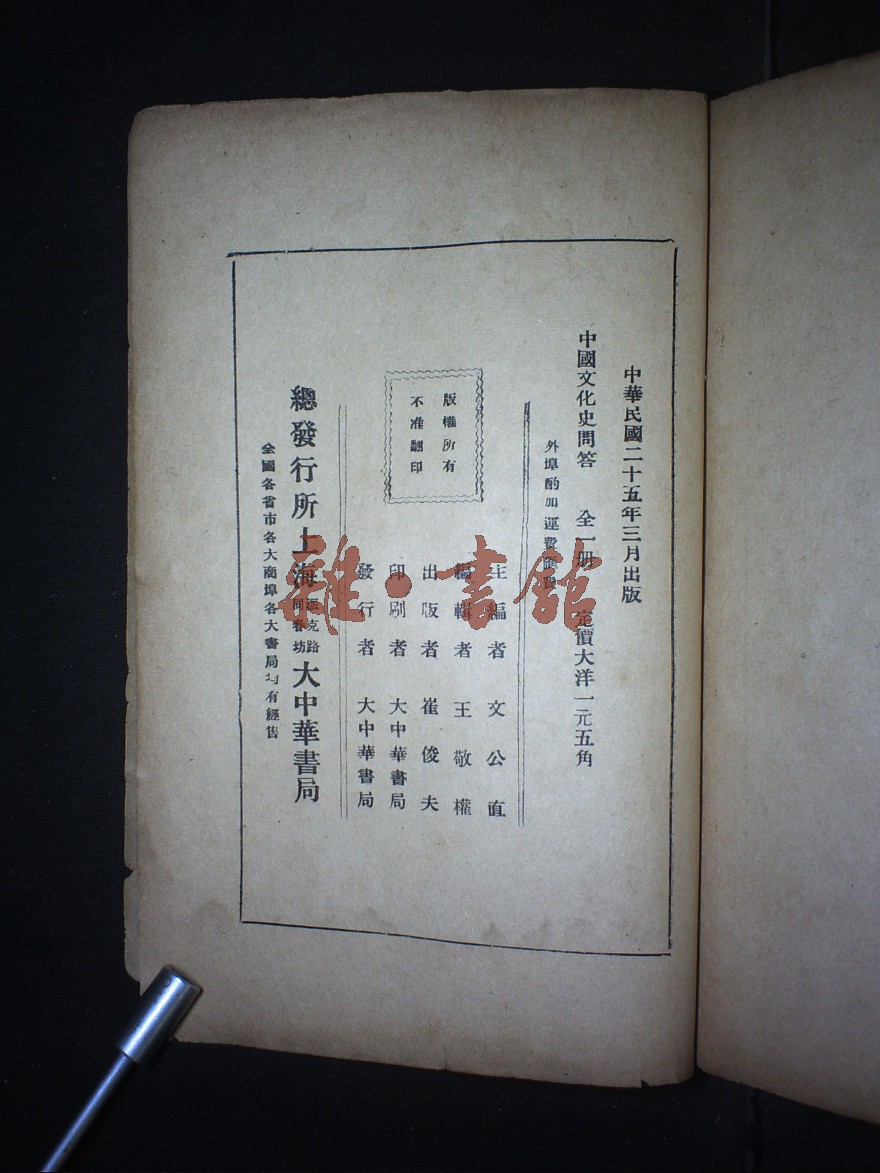 中華民國二十五年三月出版
中國文化史問答 全一册 定價大洋一元五角
外埠酌加運費匯費
主編者 文公直
編輯者 王敬權
出版者 崔俊夫
印刷者 大中華書局
發行者 大中華書局
版權所有
不准翻印
總發行所上海派克路同春坊大中華書局
全國各省市各大商埠各大書局均有經售
雜·書館